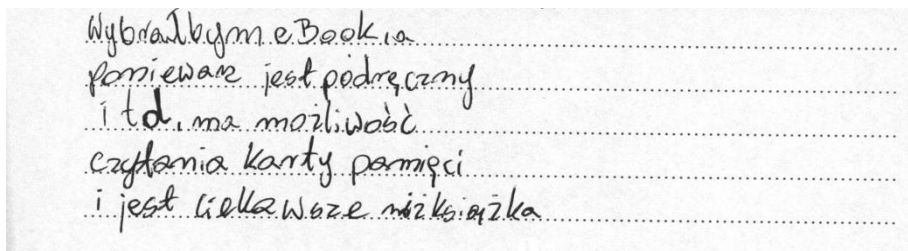 Wybrałbym e.Book,a
ponieważe jest podręczny
i td, ma możliwość
czytania karty pamięci
i jest ciekawsze niż książka